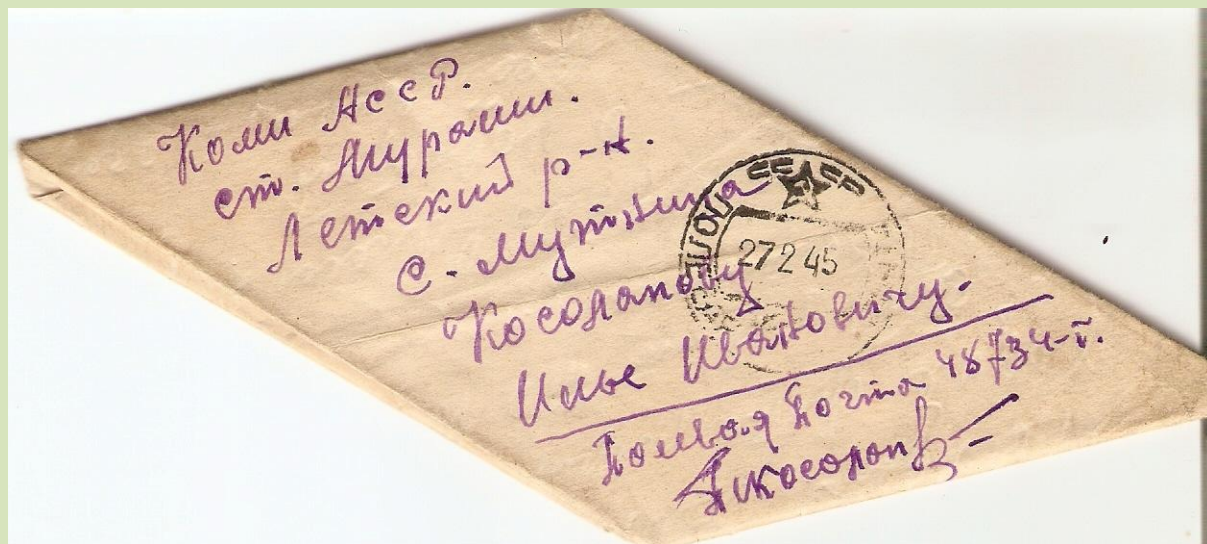 Коми АССР.
ст. Мураши.
Летский р-н.
с. Мутница
Косолапову
Илье Ивановичу.
Полевая Почта 48734-г.
Косолапов
27 2 45
СССР